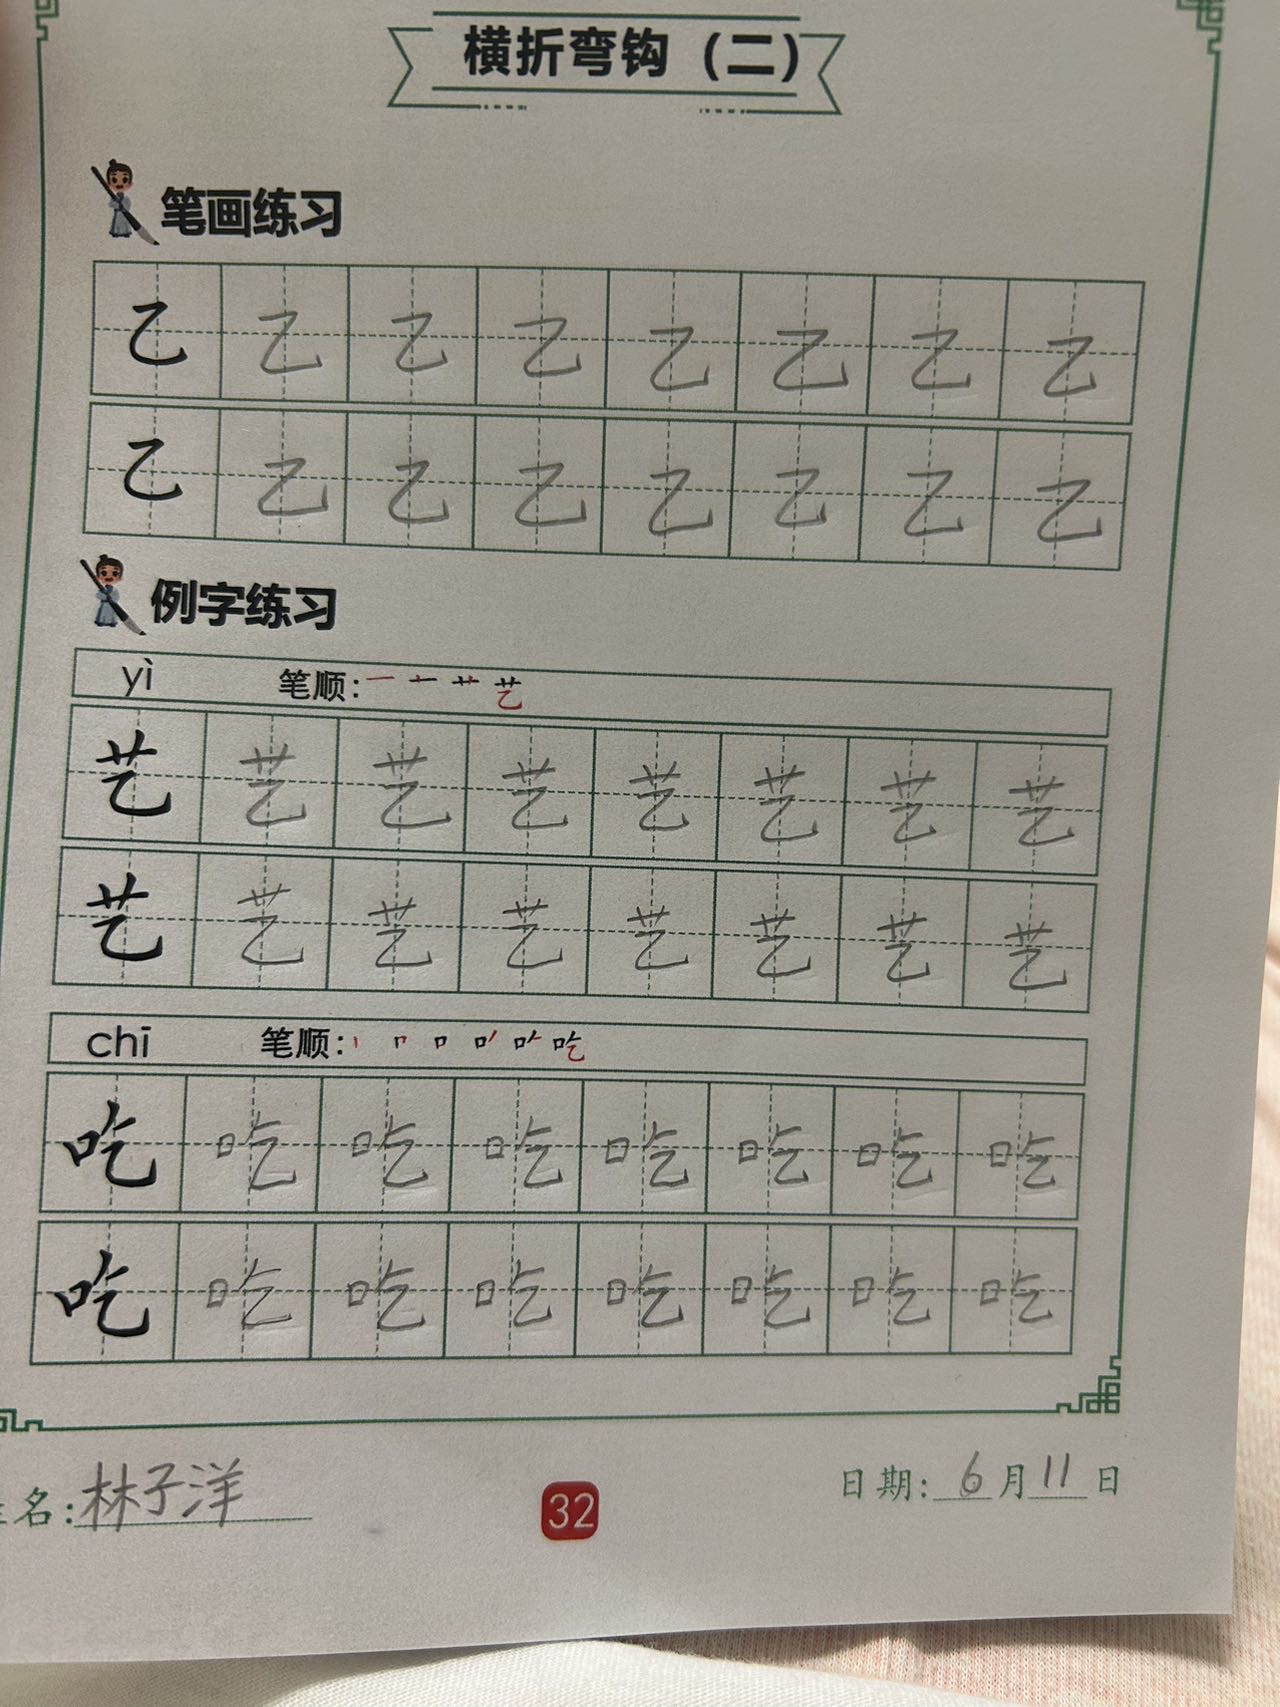 横折弯钩（二）
笔画练习
乙 乙 乙 乙 乙 乙 乙 乙
乙 乙 乙 乙 乙 乙 乙 乙
例字练习
yì 笔顺：一 十 艹 艺
艺 艺 艺 艺 艺 艺 艺 艺
艺 艺 艺 艺 艺 艺 艺 艺
chī 笔顺：丨 口 吃
吃 吃 吃 吃 吃 吃 吃 吃
吃 吃 吃 吃 吃 吃 吃 吃
名：林子洋
32
日期：6月11日